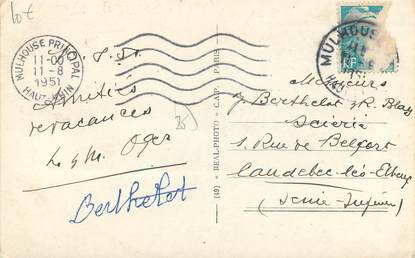 10€
MULHOUSE PRINCIPAL
11-00
11-8
1951
HAUT-RHIN
Amitiés
vacances
Berthelot
(49) « REAL-PHOTO » C.A.P. PARIS
MULHOUSE
RF
Messieurs
J. Berthelot & R. Blay
Scierie
1. Rue de Belfort
Caudebec-lès-Elbeuf
(Seine-Inférieure)